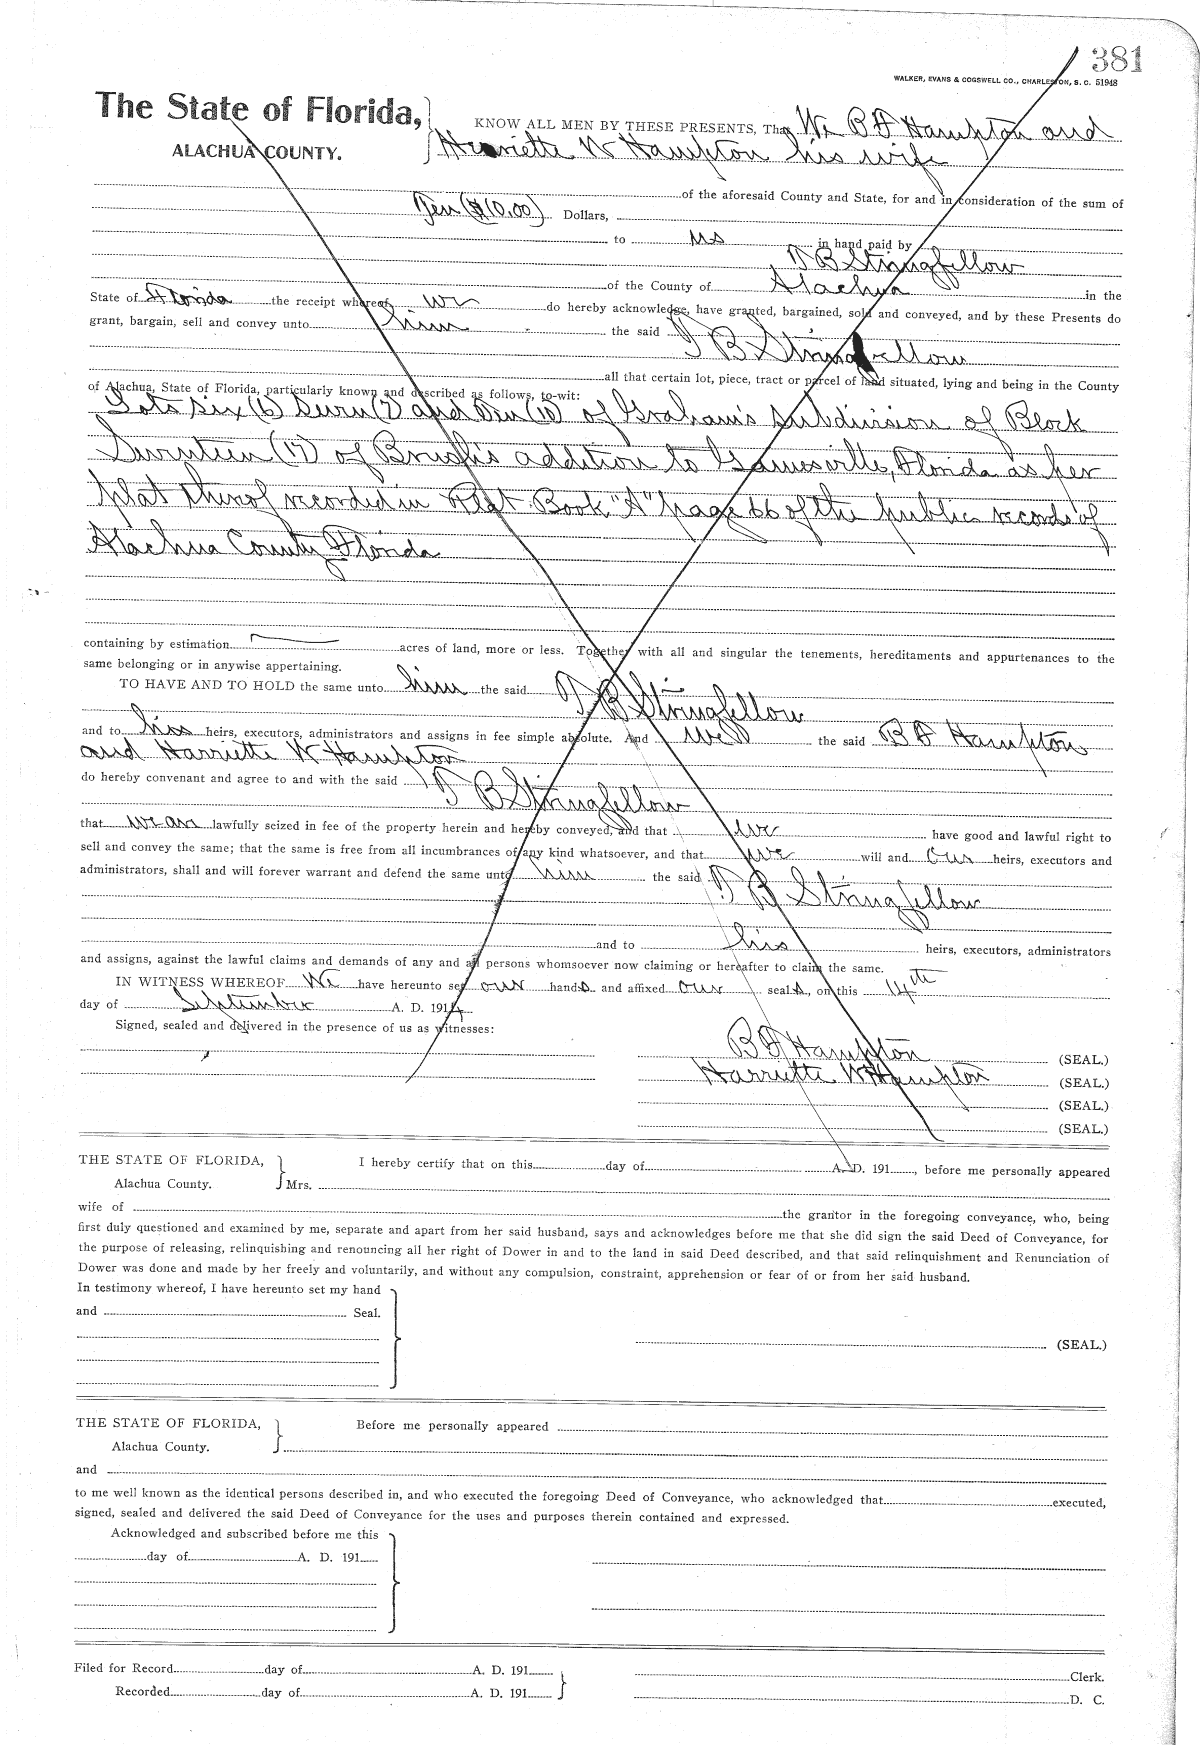 381
WALKER, EVANS & COGSWELL CO., CHARLESTON, S. C. 51948
The State of Florida,
ALACHUA COUNTY.
KNOW ALL MEN BY THESE PRESENTS, That We B F Hampton and
Harriette W Hampton his wife
of the aforesaid County and State, for and in consideration of the sum of
Ten ($10.00) Dollars,
to us in hand paid by
T B Stringfellow
of the County of Alachua in the
State of Florida the receipt whereof we do hereby acknowledge, have granted, bargained, sold and conveyed, and by these Presents do
grant, bargain, sell and convey unto him the said T B Stringfellow
all that certain lot, piece, tract or parcel of land situated, lying and being in the County
of Alachua, State of Florida, particularly known and described as follows, to-wit:
Lots Six (6) Seven (7) and Ten (10) of Graham's subdivision of Block
Seventeen (17) of Brush's addition to Gainesville, Florida as per
plat thereof recorded in Plat Book "A" page 66 of the public records of
Alachua County Florida
containing by estimation acres of land, more or less. Together with all and singular the tenements, hereditaments and appurtenances to the
same belonging or in anywise appertaining.
TO HAVE AND TO HOLD the same unto him the said T B Stringfellow
and to his heirs, executors, administrators and assigns in fee simple absolute. And we the said B F Hampton
and Harriette W Hampton
do hereby convenant and agree to and with the said T B Stringfellow
that we are lawfully seized in fee of the property herein and hereby conveyed, and that we have good and lawful right to
sell and convey the same; that the same is free from all incumbrances of any kind whatsoever, and that we will and our heirs, executors and
administrators, shall and will forever warrant and defend the same unto him the said T B Stringfellow
and to his heirs, executors, administrators
and assigns, against the lawful claims and demands of any and all persons whomsoever now claiming or hereafter to claim the same.
IN WITNESS WHEREOF We have hereunto set our hands and affixed our seals, on this 14th
day of September A. D. 1914.
Signed, sealed and delivered in the presence of us as witnesses:
B F Hampton (SEAL.)
Harriette W Hampton (SEAL.)
(SEAL.)
(SEAL.)
THE STATE OF FLORIDA,
Alachua County.
I hereby certify that on this day of A. D. 191 , before me personally appeared
Mrs.
wife of the grantor in the foregoing conveyance, who, being
first duly questioned and examined by me, separate and apart from her said husband, says and acknowledges before me that she did sign the said Deed of Conveyance, for
the purpose of releasing, relinquishing and renouncing all her right of Dower in and to the land in said Deed described, and that said relinquishment and Renunciation of
Dower was done and made by her freely and voluntarily, and without any compulsion, constraint, apprehension or fear of or from her said husband.
In testimony whereof, I have hereunto set my hand
and Seal.
(SEAL.)
THE STATE OF FLORIDA,
Alachua County.
Before me personally appeared
and
to me well known as the identical persons described in, and who executed the foregoing Deed of Conveyance, who acknowledged that executed,
signed, sealed and delivered the said Deed of Conveyance for the uses and purposes therein contained and expressed.
Acknowledged and subscribed before me this
day of A. D. 191
Filed for Record day of A. D. 191 Clerk.
Recorded day of A. D. 191 D. C.